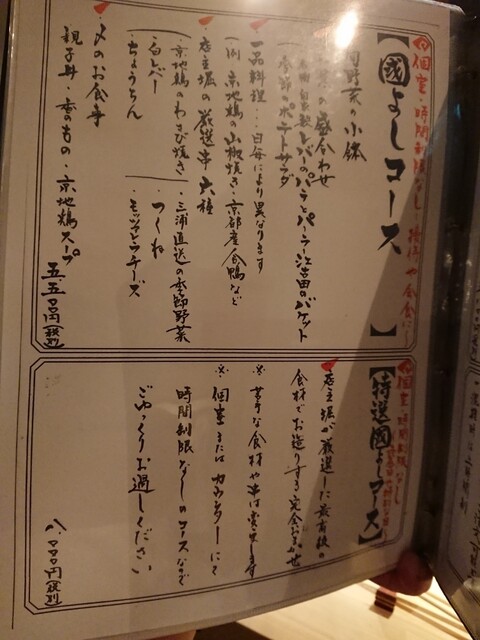 個室・時間制限なし・接待や会食に
【國よしコース】
野菜の小鉢
盛合わせ
レバーのパテとパーラー江古田のバゲット
季節のポテトサラダ
一品料理…日毎により異なります
例 京地鶏の山椒焼き・京都産合鴨など
店主堀の厳選串 六種
京地鶏のわさび焼き
三浦直送の季節野菜
白レバー
つくね
ちょうちん
モッツァレラチーズ
〆のお食事
親子丼・香のもの・京地鶏スープ
五五〇〇円(税別)
個室・時間制限なし
【特選國よしコース】
店主堀が厳選した最高級の
食材でお造りする完全おまかせ
※苦手な食材や串は変更します
※個室またはカウンターにて
時間制限なしのコースなので
ごゆっくりお過しください
八、〇〇〇円(税別)